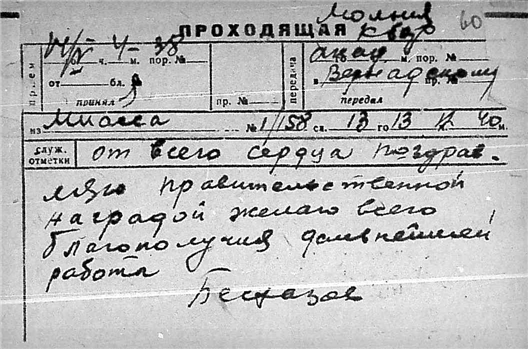 Молния 60
ПРОХОДЯЩАЯ
14/V 4 ч. - 38 м. пор. №
прием
от бл. №
принял
пр. №
передача
акад
Вернадскому
в пор. №
передал
из Миасса № 1/158 сл. 13 го 13 ч. 40 м.
служ. отметки
от всего сердца поздрав.
ляю правительственной
наградой желаю всего
благополучия дальнейшей
работы